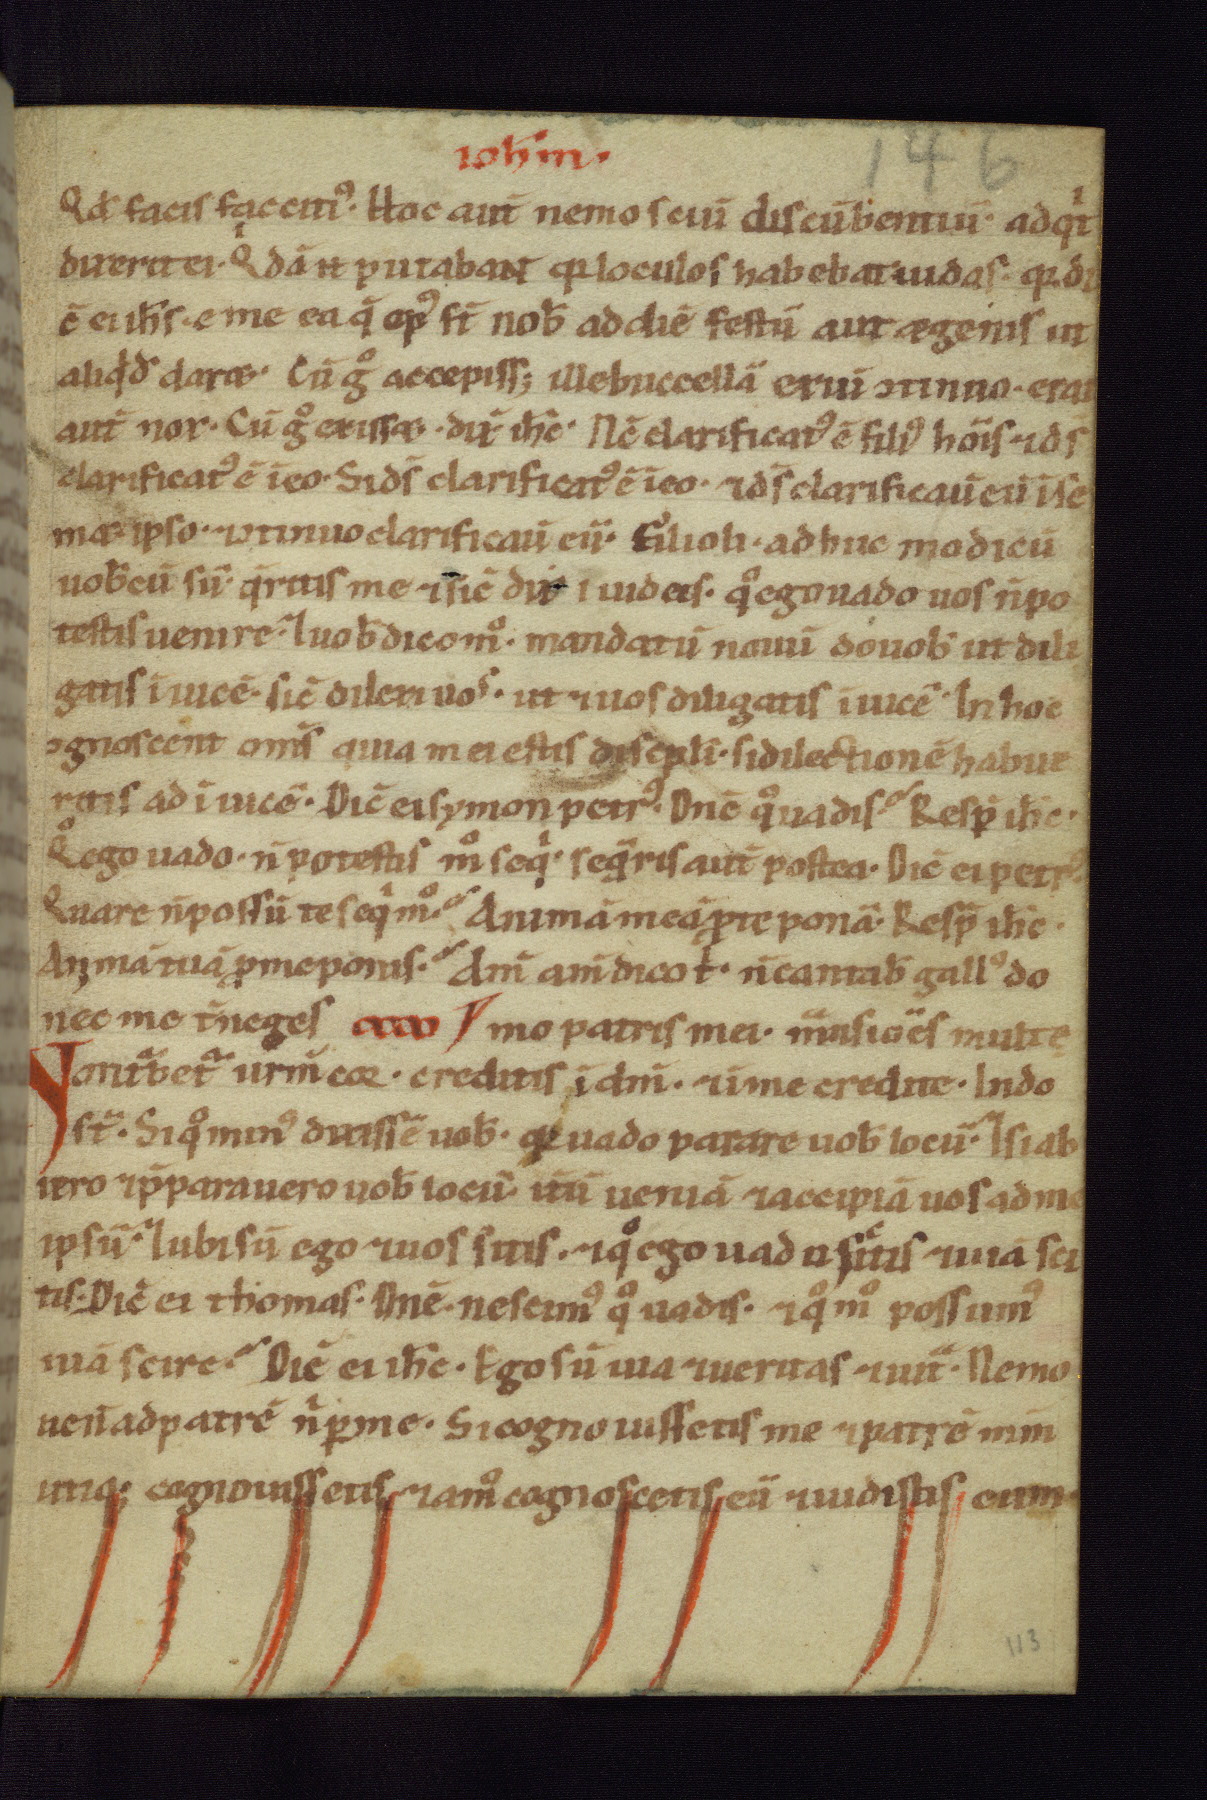 ioh̄m.
146
Qd̄ facis fac citiꝰ. Hoc aut̄ nemo sciū discūbentiū. ad qͥt
dixerit ei. Qͥdā n̄ putabant qꝛ loculos habebat iudas. qꝛ dix
ē ei ih̄s. eme ea q̄ opꝰ st̄ nob̄ ad diē festū aut ægenis ut
aliqͥd daræ. Cū gͦ accepiss; ille buccellā exiū ↄtinuo. erat
aut̄ nox. Cū gͦ exissæ. dix̄ ih̄c. Nc̄ clarificatꝰ ē filiꝰ hōis ⁊ ds̄
clarificatꝰ ē ī eo. Si ds̄ clarificatꝰ ē ī eo. ⁊ ds̄ clarificaū eū ī se
mæ ipso. ⁊ ↄtinuo clarificaū eū. Filioli. adhuc modicū
uob̄cū sū. q̄ritis me ⁊ sic̄ dix iudeis. qͦ ego uado uos n̄ po
testis uenire. ⁊ uob̄ dico mͦ. mandatū nouū do uob̄ ut dili
gatis ī uicē. sic̄ dilexi uos. ut ⁊ uos diligatis ī uicē. In hoc
ↄgnoscent om̄s quia mei estis discipl̄i. si dilectionē habue
ritis ad ī uicē. Dic̄ ei symon petrꝰ. Dn̄e qͦ uadis. Resp̄ ih̄c.
Qͦ ego uado. n̄ potestis mͦ seqͥ. seq̄ris aut̄ postea. Dic̄ ei petrꝰ
Quare n̄ possū te seqͥ mͦ. Animā meā ꝓ te ponā. Resp̄ ih̄c.
Animā tuā ꝓ me ponis. Am̄ am̄ dico t̄. n̄ cantab̄ gallꝰ do
nec me t̄ neges mo patris mei. māsiōes multe
Non tͣbet̄ ur̄m coꝛ. creditis ī dm̄. ⁊ ī me credite. In do
st̄. Si qͦ minꝰ dixissē uob̄. qꝛ uado parare uob̄ locū. ⁊ si ab
iero ⁊ p̄parauero uob̄ locū. itū ueniā ⁊ accipiā uos ad me
ipsū. ⁊ ubi sū ego ⁊ uos sitis. ⁊ qͦ ego uado scitis ⁊ uiā sci
tis. Dic̄ ei thomas. Dn̄e. nescimꝰ qͦ uadis. ⁊ qͦ mͦ possumꝰ
uiā scire. Dic̄ ei ih̄c. Ego sū uia ⁊ ueritas ⁊ uitͣ. Nemo
uen̄ ad patrē nͥ ꝑ me. Si cognouissetis me ⁊ patrē mm̄
utiq; cognouissetis ⁊ amͦ cognoscetis eū ⁊ uidistis eum.
113